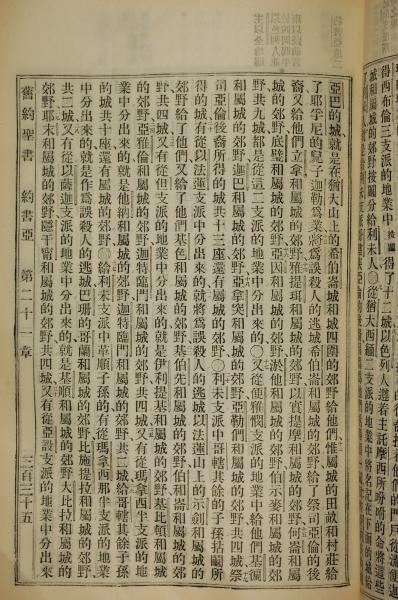 得西布倫三支派的地業中按鬮得了十二城以色列人遵着主託摩西所吩咐的命將這些
城和屬城的郊野按鬮分給利未人〇從猶大西緬二支派的地業中將名記在下面的城
亞巴的城就是在猶大山上的希伯崙城和城四圍的郊野給他們惟屬城的田畝和村莊給
了耶孚尼的兒子迦勒爲業將爲誤殺人的逃城希伯崙和屬城的郊野給了祭司亞倫的後
裔又給他們立拿和屬城的郊野雅提珥和屬城的郊野以實提摩和屬城的郊野何崙和屬
城的郊野底璧和屬城的郊野亞因和屬城的郊野淤他和屬城的郊野伯示麥和屬城的郊
野共九城都是從這二支派的地業中給他們的〇又從便雅憫支派的地業中給他們基徧
和屬城的郊野迦巴和屬城的郊野亞拿突和屬城的郊野亞勒們和屬城的郊野共四城祭
司亞倫後裔所得的城共十三座還有屬城的郊野〇利未支派中哥轄其餘的子孫拈鬮所
得的城有從以法蓮支派中分出來的就將爲誤殺人的逃城以法蓮山上的示劍和屬城的
郊野給了他們又給了他們基色和屬城的郊野基伯先和屬城的郊野伯和崙和屬城的郊
野共四城又有從但支派的地業中分出來的就是伊利提基和屬城的郊野基比頓和屬城
的郊野亞雅倫和屬城的郊野迦特臨門和屬城的郊野共四城又有從瑪拿西半支派的地
業中分出來的就是他納和屬城的郊野迦特臨門和屬城的郊野共二城給哥轄其餘子孫
的城共十座還有屬城的郊野〇給利未支派中革順子孫的有從瑪拿西那半支派的地業
中分出來的就是作爲誤殺人的逃城巴珊的哥蘭和屬城的郊野比施提拉和屬城的郊野
共二城又有從以薩迦支派的地業中分出來的就是基順和屬城的郊野大比拉和屬城的
郊野耶末和屬城的郊野隱干甯和屬城的郊野共四城又有從亞設支派的地業中分出來
舊約聖書 約書亞 第二十一章 三百三十五